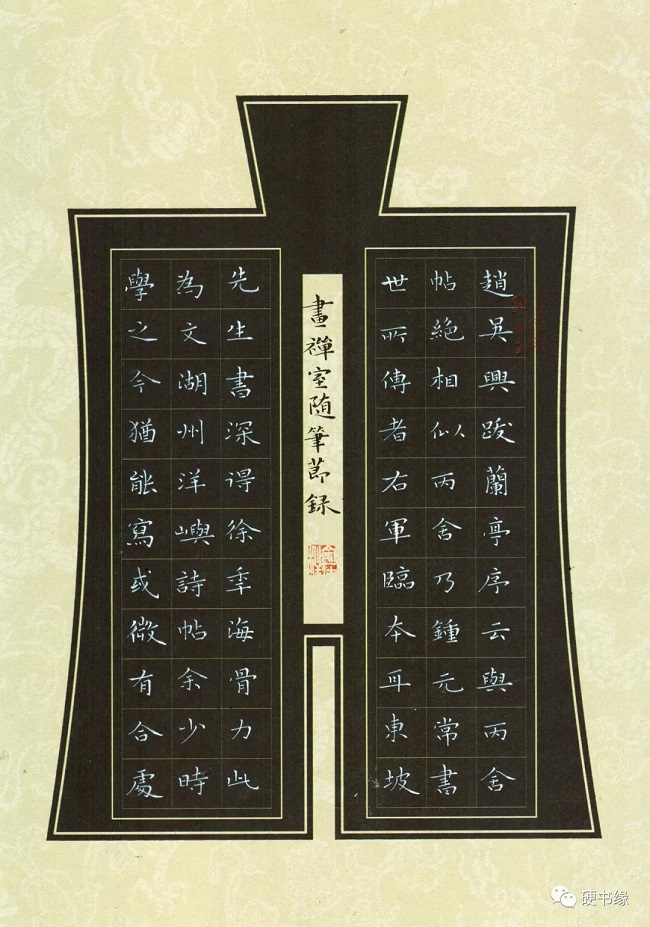 趙吳興跋蘭亭序云與丙舍
帖絕相似丙舍乃鍾元常書
世所傳者右軍臨本耳東坡
畫禪室随筆節録
先生書深得徐季海骨力此
為文湖州洋嶼詩帖余少時
學之今猶能寫或微有合處
硬书缘